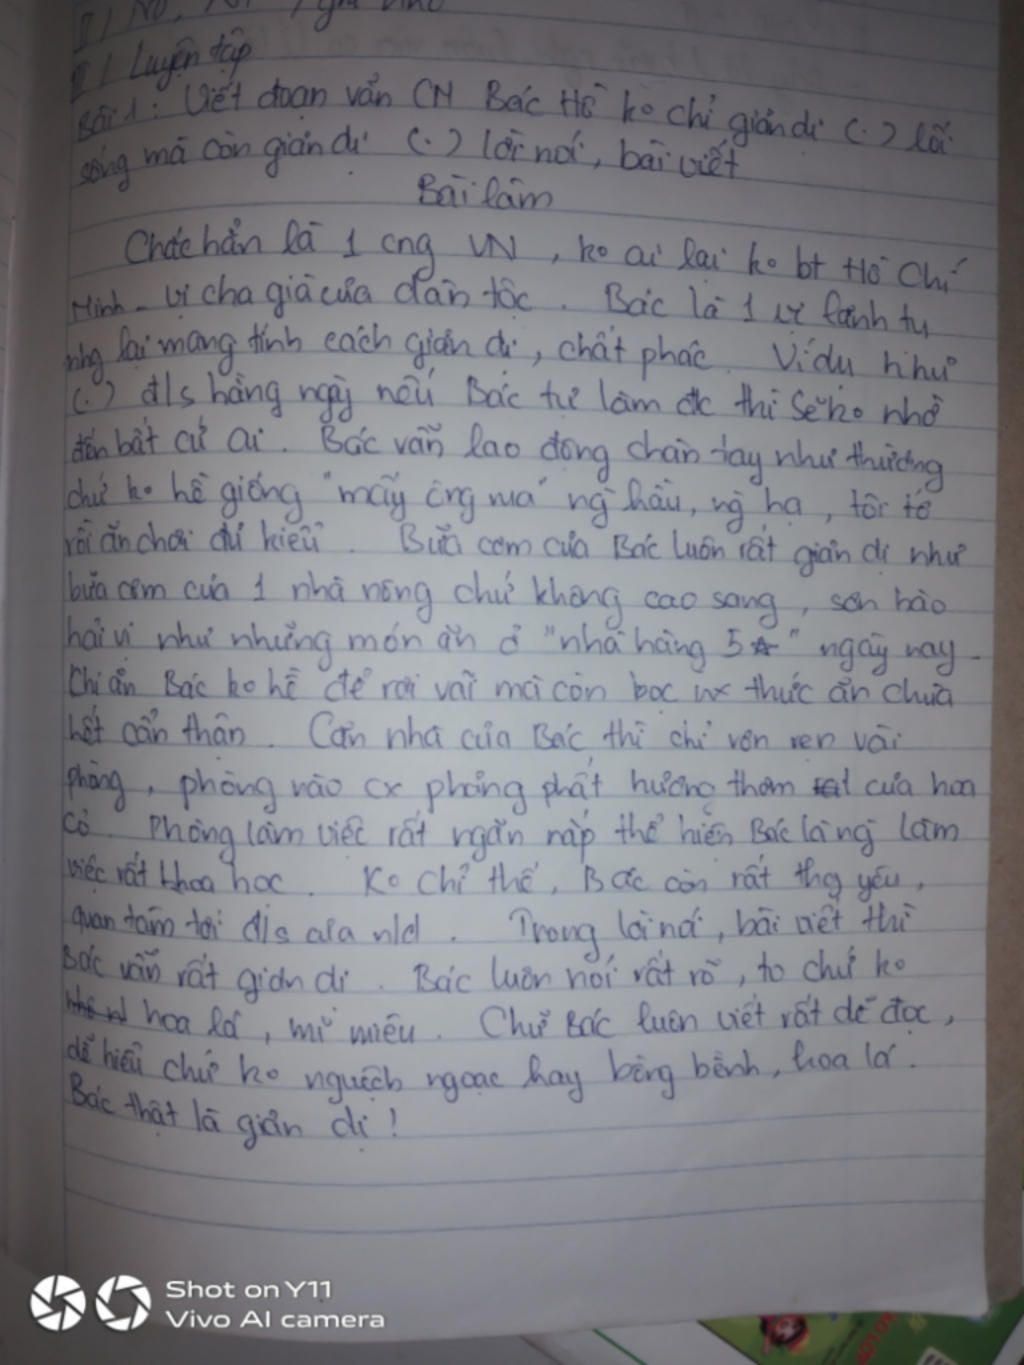 II/ Luyện tập
Bài 1: Viết đoạn văn CM Bác Hồ ko chỉ giản dị (.) lối
sống mà còn giản dị (.) lời nói, bài viết
Bài làm
Chắc hẳn là 1 cng VN, ko ai lại ko bt Hồ Chí
Minh - vị cha già của dân tộc. Bác là 1 vị lãnh tụ
nhg lại mang tính cách giản dị, chất phác. Ví dụ như
(.) đ/s hằng ngày nếu Bác tự làm đc thì sẽ ko nhờ
đến bất cứ ai. Bác vẫn lao động chân tay như thường
chứ ko hề giống "mấy ông vua" ng hầu, ng hạ, tôi tớ
rồi ăn chơi đủ kiểu. Bữa cơm của Bác luôn rất giản dị như
bữa cơm của 1 nhà nông chứ không cao sang, sơn hào
hải vị như những món ăn ở "nhà hàng 5☆" ngày nay.
Khi ăn Bác ko hề để rơi vãi mà còn bọc thức ăn chưa
hết cẩn thận. Căn nhà của Bác thì chỉ vỏn vẹn vài
phòng, phòng nào cx phảng phất hương thơm của hoa
cỏ. Phòng làm việc rất ngăn nắp thể hiện Bác là ng làm
việc rất khoa học. Ko chỉ thế, Bác còn rất thg yêu,
quan tâm tới đ/s của nld. Trong lời nói, bài viết thì
Bác vẫn rất giản dị. Bác luôn nói rất rõ, to chứ ko
hoa lá, mĩ miều. Chữ Bác luôn viết rất dễ đọc,
dễ hiểu chứ ko nguệch ngoạc hay bồng bềnh, hoa lá.
Bác thật là giản dị!
Shot on Y11
Vivo AI camera